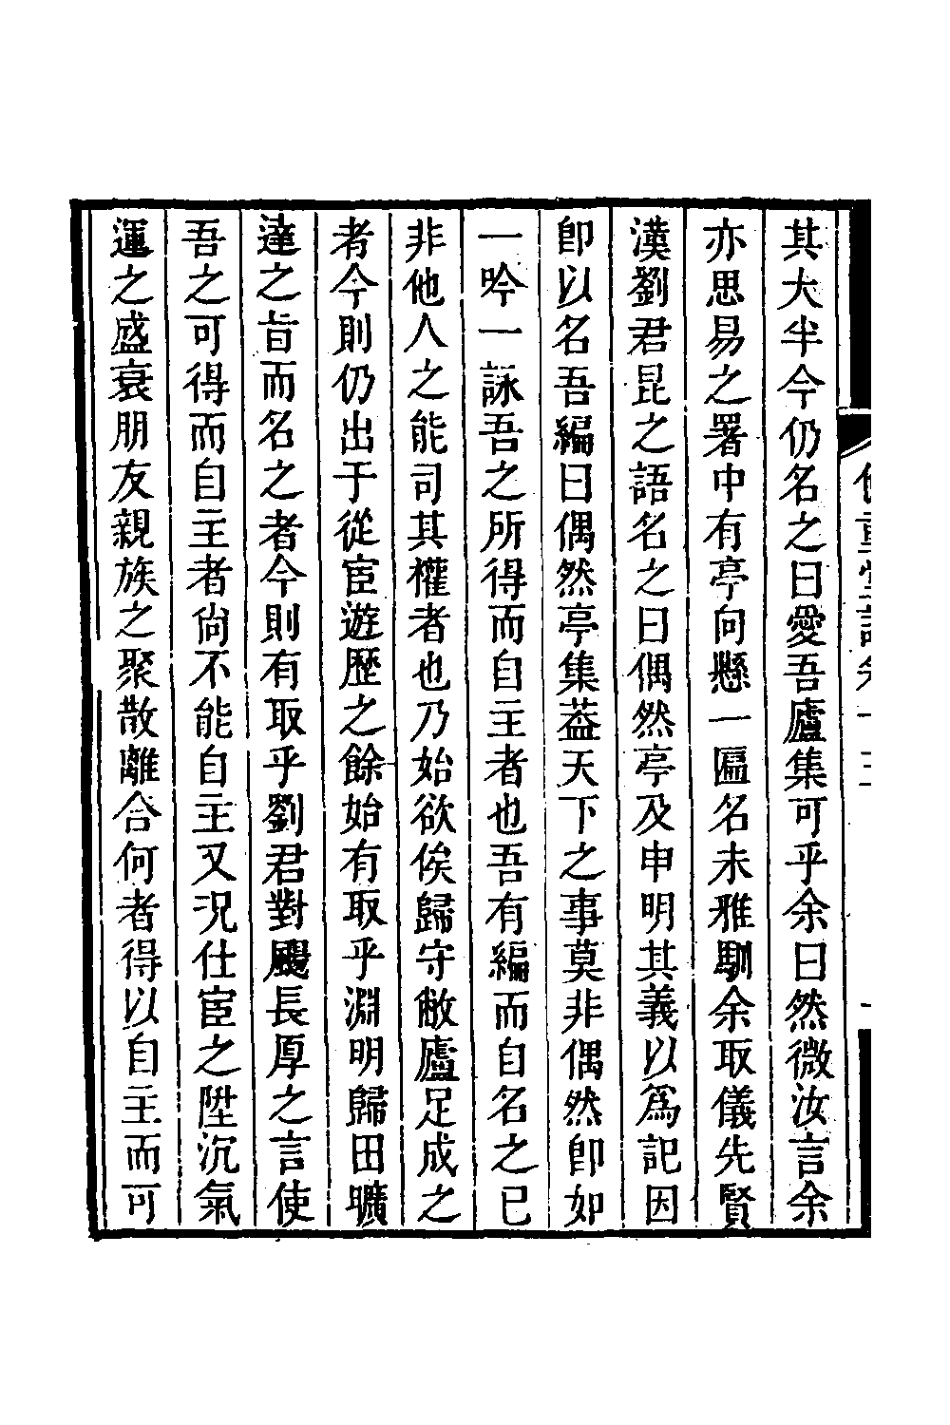 其大半今仍名之曰愛吾廬集可乎余曰然微汝言余
亦思易之署中有亭向懸一匾名未雅馴余取儀先賢
漢劉君昆之語名之曰偶然亭及申明其義以爲記因
卽以名吾編曰偶然亭集葢天下之事莫非偶然卽如
一吟一詠吾之所得而自主者也吾有編而自名之已
非他人之能司其權者也乃始欲俟歸守敝廬足成之
者今則仍出于從宦遊歷之餘始有取乎淵明歸田曠
達之旨而名之者今則有取乎劉君對颺長厚之言使
吾之可得而自主者尙不能自主又况仕宦之陞沉氣
運之盛衰朋友親族之聚散離合何者得以自主而可